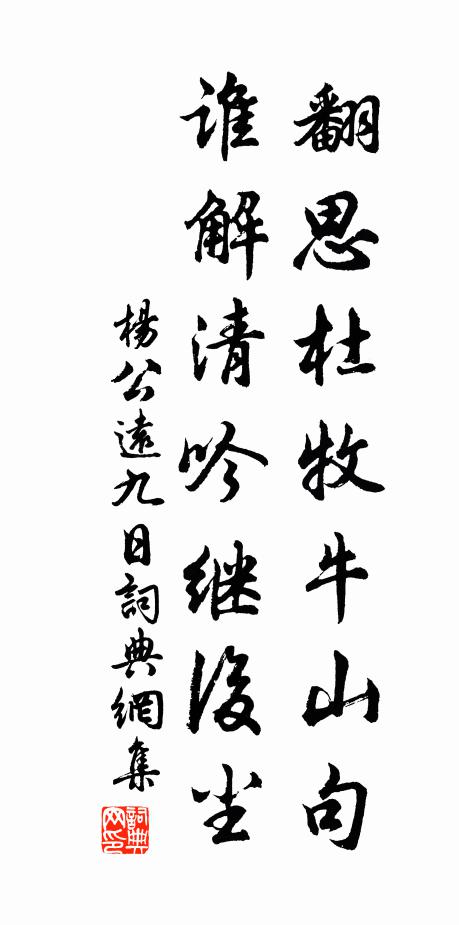 翻思杜牧牛山句
谁解清吟继後尘
楊公遠九日詞典網集
詞典网印